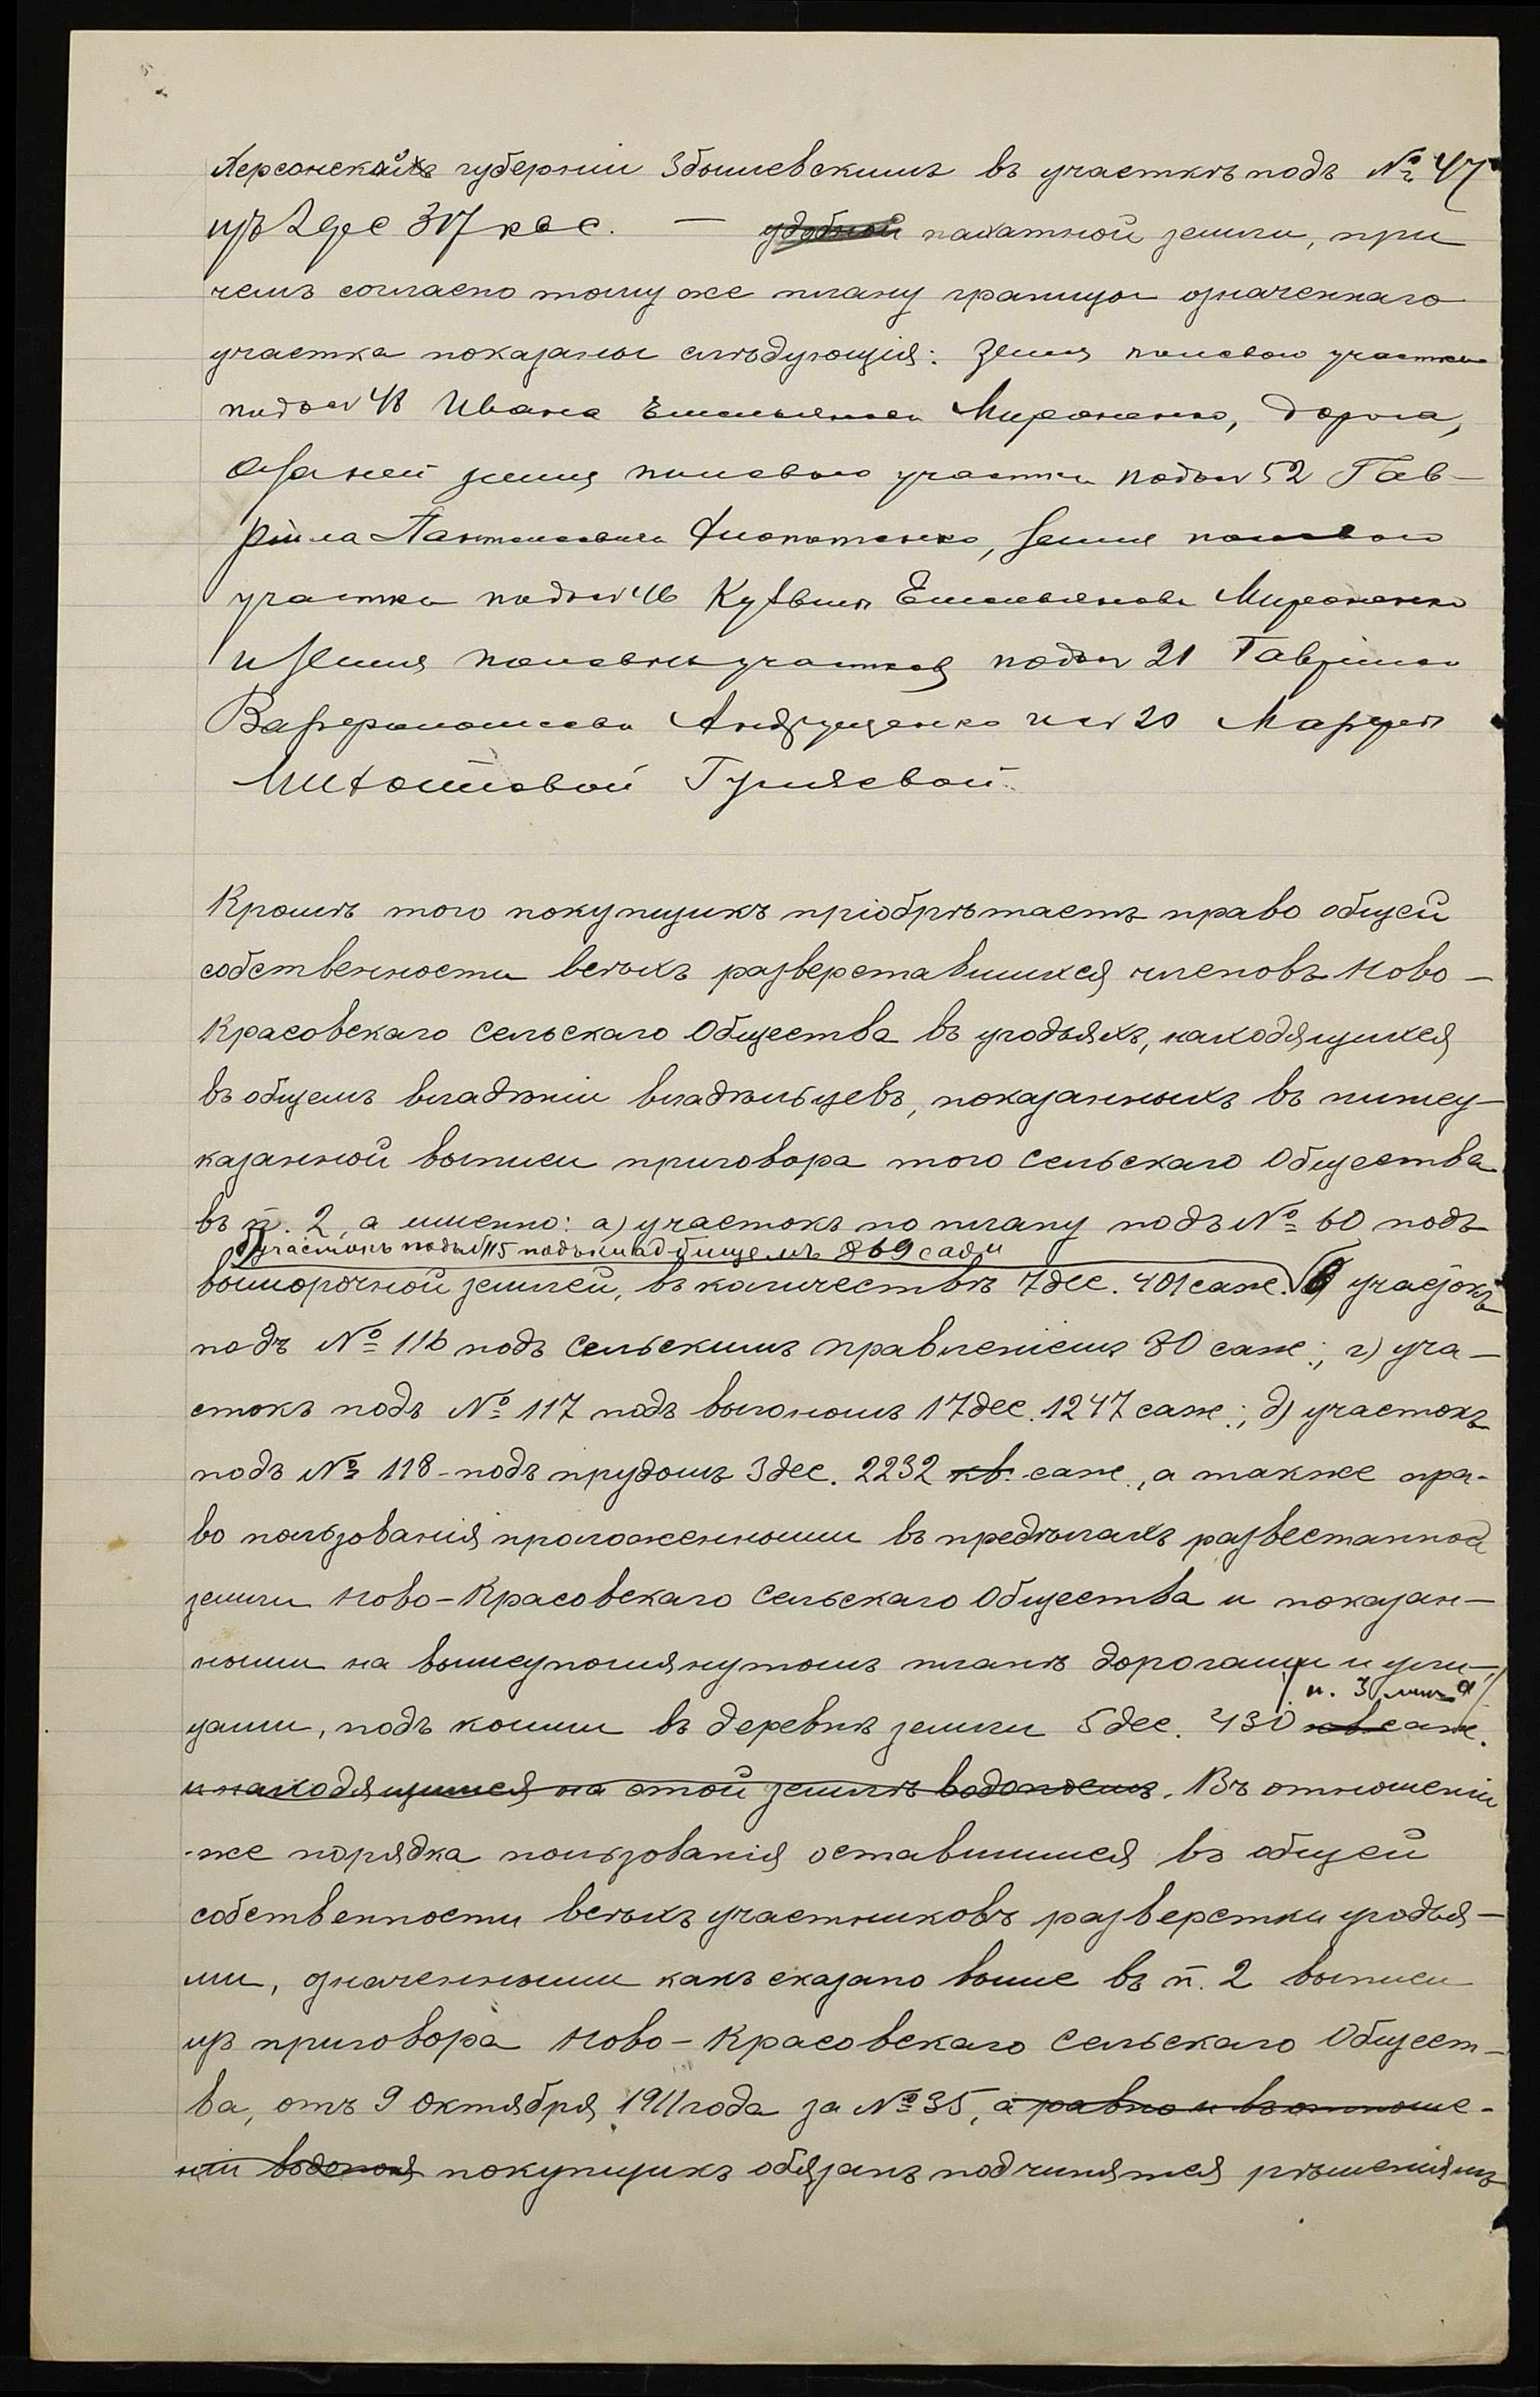 Херсонской губерніи Збышевскимъ въ участкѣ подъ № 47
изъ 2 дес 307 кв с. — удобной пахатной земли, при
чемъ согласно тому же плану границы означеннаго
участка показаны слѣдующія: земля полевого участка
подъ № 48 Ивана Емельянова Мироненко, дорога,
за ней земля полевого участка подъ № 52 Гав-
ріила Пантелеевича, земля полевого
участка подъ № 46 Кузьмы Емельянова Мироненко
и земля полевыхъ участковъ подъ № 21 Гавріила
Варфоломеева Андрущенко и № 20 Марфы
Гуляевой
Кромѣ того покупщикъ пріобрѣтаетъ право общей
собственности всѣхъ разверставшихся членовъ Ново-
Красовскаго Сельскаго Общества въ угодьяхъ, находящихся
въ общемъ владѣніи владѣльцевъ, показанныхъ въ нижеу-
казанной выписи приговора того Сельскаго Общества
въ п. 2, а именно: а) участокъ по плану подъ № 60 подъ
б) участокъ подъ № 115 подъ кладбищемъ 869 саж
выморочной землей, въ количествѣ 7 дес. 401 саж. в) участокъ
подъ № 116 подъ Сельскимъ Правленіемъ 80 саж.; г) уча-
стокъ подъ № 117 подъ выгономъ 17 дес. 1247 саж.; д) участокъ
подъ № 118 - подъ прудомъ 3 дес. 2232 кв. саж., а также пра-
во пользованія проложенными въ предѣлахъ развестанной
земли Ново-Красовскаго Сельскаго Общества и показан-
ными на вышеупомянутомъ планѣ дорогами и ули-
цами, подъ коими въ деревнѣ земли 5 дес. 430 кв. саж.
и находящимся на этой землѣ водопоемъ. Въ отношеніи
же порядка пользованія оставшимися въ общей
собственности всѣхъ участниковъ разверстки угодья-
ми, означенными какъ сказано выше въ п. 2 выписи
изъ приговора Ново-Красовскаго Сельскаго Общест-
ва, отъ 9 Октября 1911 года за № 35, а равно и въ отноше-
ніи водопоя покупщикъ обязанъ подчинятся рѣшеніямъ